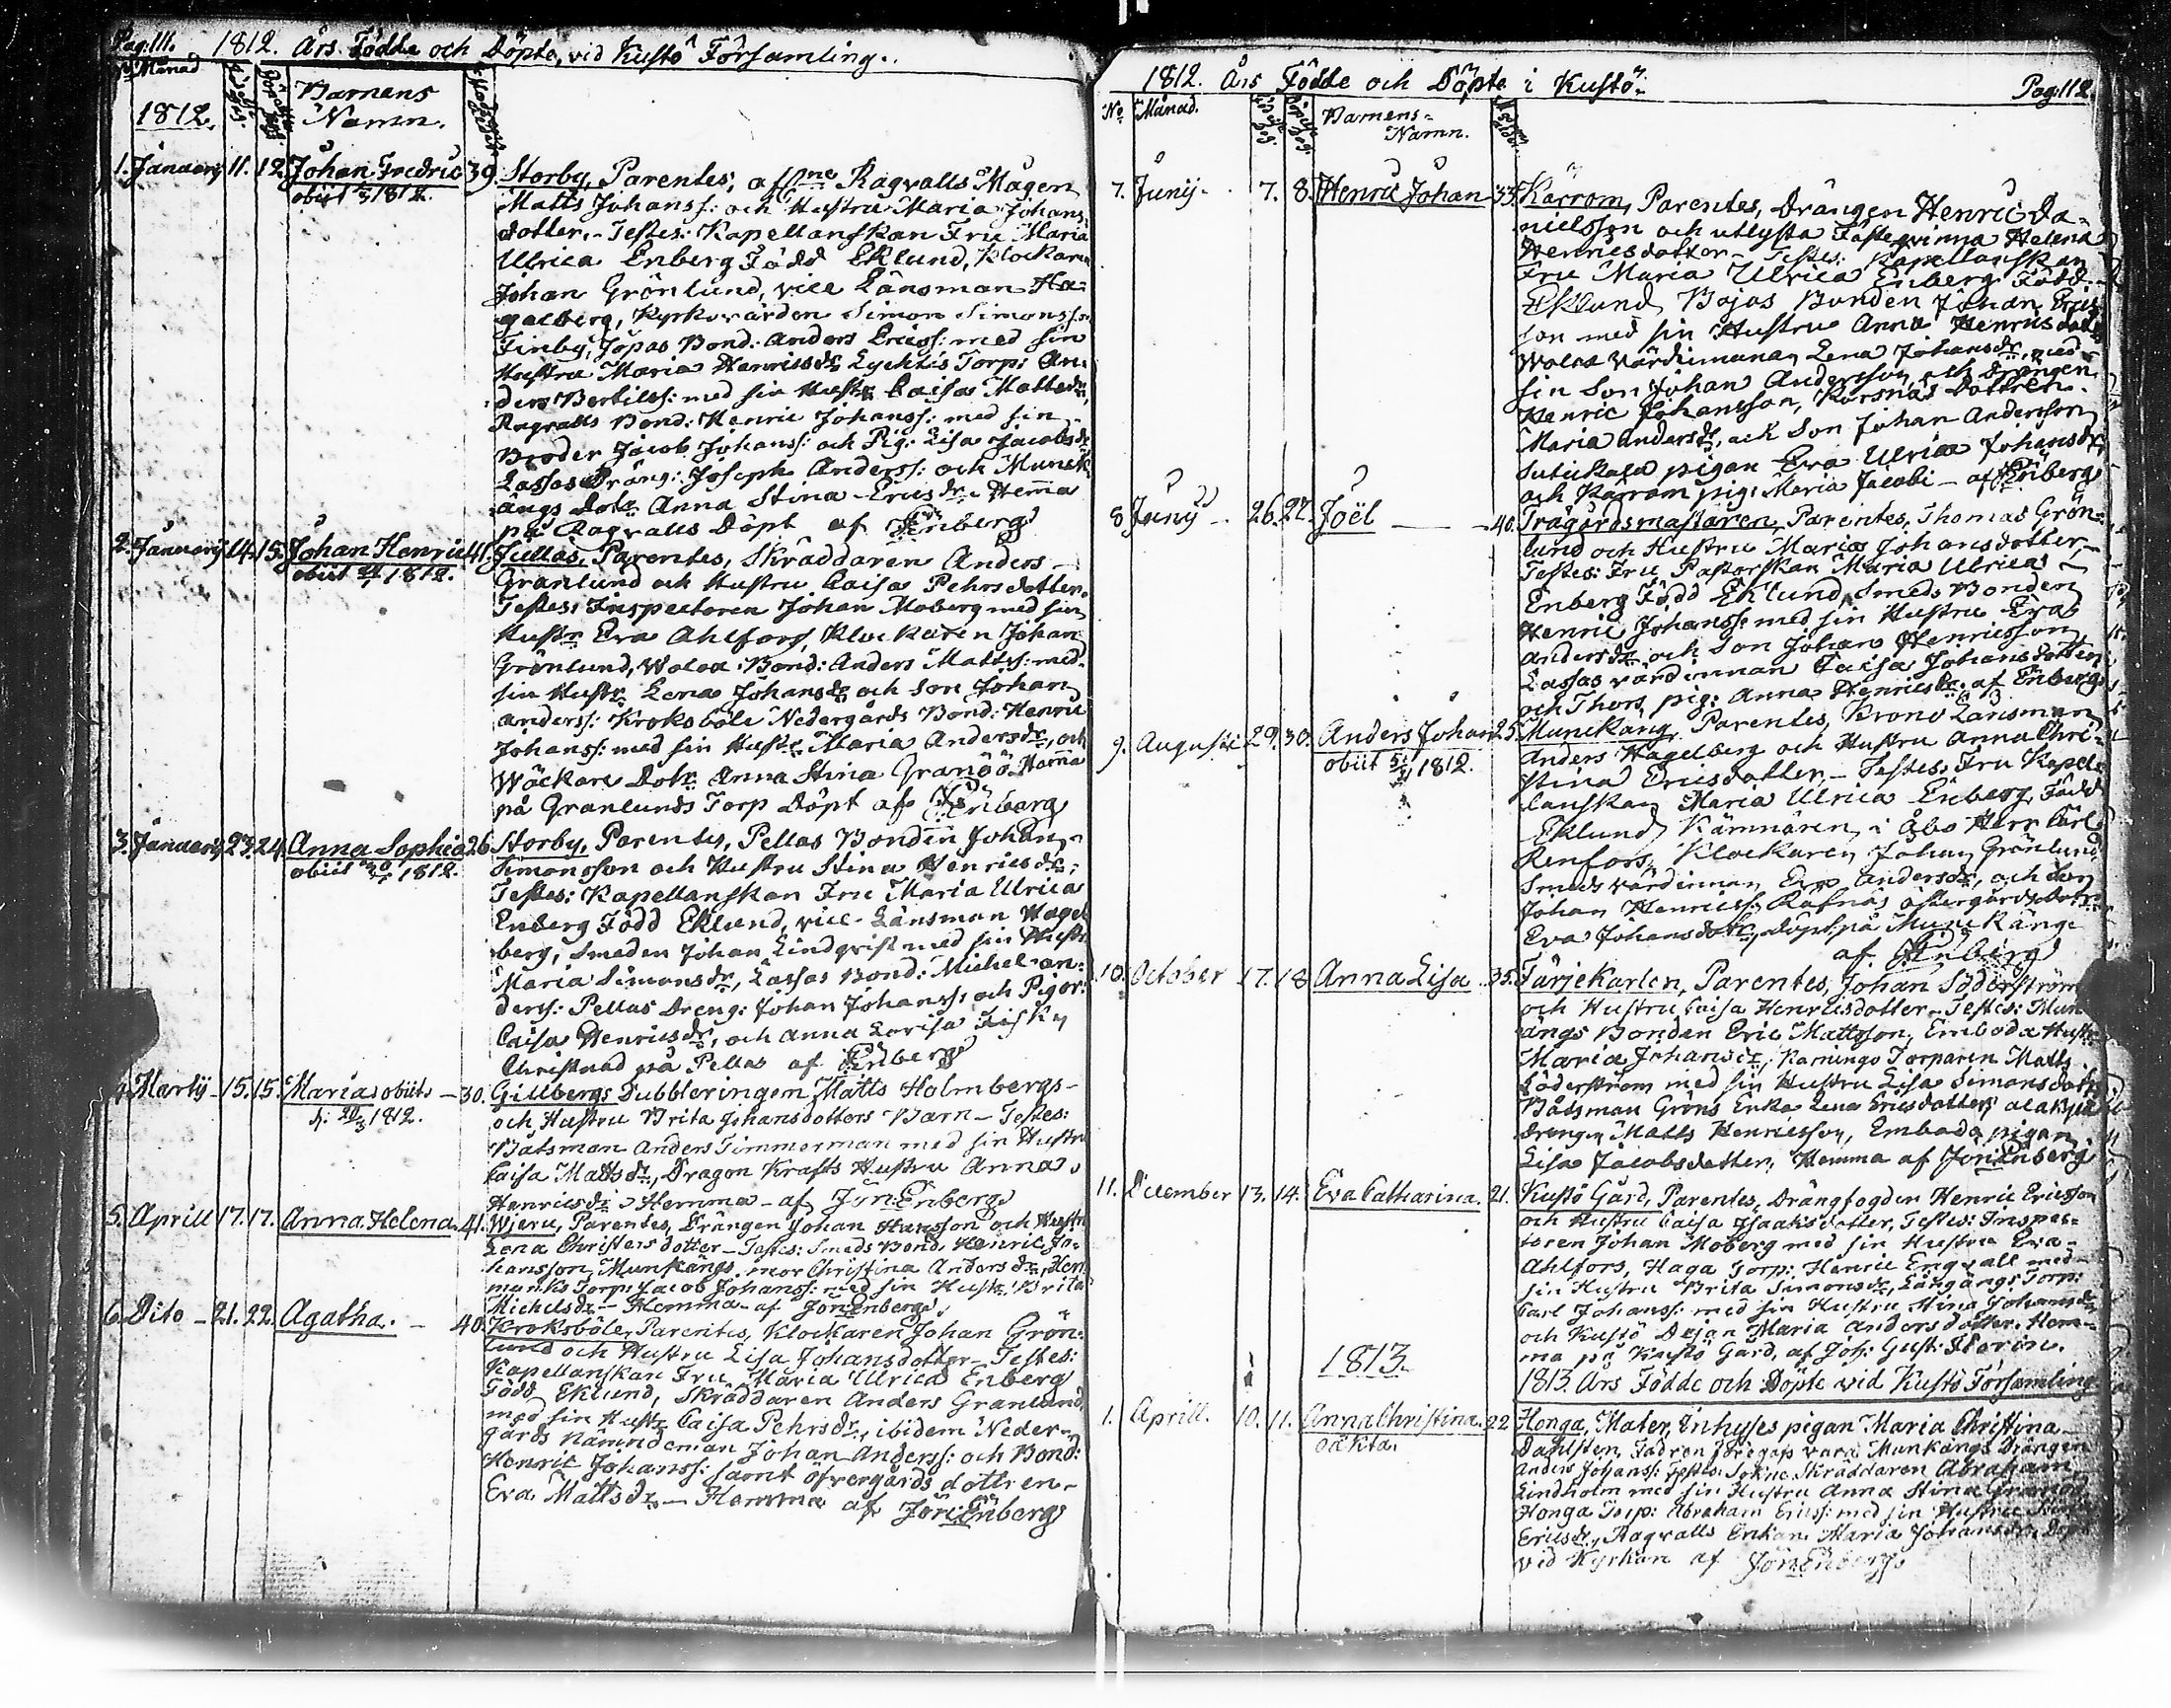 Pag: 111. 1812. Års Födde och Döpte, vid Kustö Församling.
Månad
1812.
Barnens
Namn.
1. Januarij 11. 12. Johan Fredric 39. Storby, Parentes, Ragvalls Mågen
obiit 1812. Matts Johanss: och Hustru Maria Johans
dotter. - Testes: Kapellanskan Fru Maria
Ulrica Enberg Född Eklund, Klockaren
Johan Grönlund, vice Länsman Ha-
gelberg, Kyrkovärden Simon Simonsson
Finby, Jopas Bond: Anders Ericss: med sin
Hustru Maria Henricsdr Torp: An-
ders Bertilss: med sin Hustr Caisa Mattsdr,
Ragvalls Bond: Henric Johanss: med sin
Broder Jacob Johanss: och Pig: Lisa Jacobsdr
Lassas Dräng: Joseph Anderss: och Munck
ängs Dotr Anna Stina Ericsdr. Hemma
på Ragvalls Döpt af Enberg
2. Januarij 14. 15. Johan Henric 41. Jullas, Parentes, Skräddaren Anders
obiit 1812. Granlund och Hustru Caisa Pehrsdotter.
Testes: Inspectoren Johan Moberg med sin
Hustr Eva Ahlfors, Klockaren Johan
Grönlund, Bond: Anders Mattss: med
sin Hustr. Lena Johansdr och Son Johan
Anderss: Kroksböle Nedergårds Bond: Henric
Johanss: med sin Hustr Maria Andersdr, och
Wäckare Dotr Anna Stina Granöö. Hemma
på Granlunds Torp Döpt af Enberg
3. Januarij 23. 24. Anna Sophia 26. Storby, Parentes, Pellas Bonden Johan
obiit 1812. Simonsson och Hustru Stina Henricsdr,
Testes: Kapellanskan Fru Maria Ulrica
Enberg Född Eklund, vice Länsman Hagel
berg, Smeden Johan Lindqvist med sin Hustr
Maria Simonsdr, Lassas Bond: Michel An-
derss: Pellas Dreng: Johan Johanss: och Pigor:
Caisa Henricsdr, och Anna Lovisa Fisk
Christnad på Pellas af Enberg
4. Martij 15. 15. Maria obiit 30. Gillbergs Dubbleringen Matts Holmbergs
d: 1812. och Hustru Brita Johansdotters Barn - Testes:
Båtsman Anders Timmerman med sin Hustru
Caisa Mattsdr, Dragon Krafts Hustru Anna
Henricsdr. Hemma - af Jön:Enberg
5. Aprill 17. 17. Anna Helena. 41. Wjeru, Parentes, Drängen Johan Hansson och Hustru
Lena Christersdotter - Testes: Smeds Bond: Henric Jo-
hansson, Munkängs mor Christina Andersdr, Her
manks Torp: Jacob Johanss: med sin Hustr Brita
Michelsdr - Hemma - af Jön:Enberg
6. Dito - 21. 22. Agatha. - 40. Kroksböle, Parentes, Klockaren Johan Grön-
lund och Hustru Lisa Johansdotter - Testes:
Kapellanskan Fru Maria Ulrica Enberg
Född Eklund, Skräddaren Anders Granlund
med sin Hustr Caisa Pehrsdr, ibidem Neder-
gårds Nämndeman Johan Anderss: och Bond:
Henric Johanss: samt öfvergårds dottren
Eva Mattsdr - Hemma af Jön:Enberg
1812. Års Födde och Döpte i Kustö.
Pag: 112.
No Månad.
Barnens
Namn.
7. Junij. 7. 8. Henric Johan 33. Kärrom, Parentes, Drängen Henric Da-
nielsson och utlysta Fästeqvinna Helena
Henricsdotter - Testes: Kapellanskan
Fru Maria Ulrica Enberg Född.
Eklund Bojas Bonden Johan Erics
son med sin Hustru Anna Henricsdotr
Lena Johansdr, med
sin Son Johan Andersson, och Drängen
Henric Johansson, Korsnäs Dottren
Maria Andersdr, och Son Johan Andersson
pigan Eva Ulrica Johansdr
och Kärrom pig: Maria Jacobi - af Enberg
8. Junij - 26. 27. Joël - 40. Trägårdsmästaren, Parentes, Thomas Grön-
lund och Hustru Maria Johansdotter, -
Testes: Fru Pastorskan Maria Ulrica
Enberg Född Eklund, Smeds Bonden
Henric Johanss: med sin Hustru Eva
Andersdr och Son Johan Henricsson
Lassas värdinnan Caisa Johansdotter
och Thors pig: Anna Henricsdr. af Enberg
9. Augusti 29. 30. Anders Johan 25. Munckäng, Parentes, Krono Länsman
obiit 1812. Anders Hagelberg och Hustru Anna Chri-
stina Ericsdotter - Testes: Fru Kapel-
lanskan Maria Ulrica Enberg Född
Eklund, Kämnären i Åbo Herr Carl
Renfors, Klockaren Johan Grönlund
Smeds värdinnan Eva Andersdr, och Son
Johan Henricss: Rafnäs östergårds Dotr
Eva Johansdotr, Döpt på Munckäng
af Enberg
10. October 17. 18. Anna Lisa 35. Färjekarlen, Parentes, Johan Söderström
och Hustru Caisa Henricsdotter - Testes: Munk
ängs Bonden Eric Mattsson, Emboda Hustr
Maria Johansdr, Torparen Matts
Söderström med sin Hustru Lisa Simonsdotr
Båtsman Gröns Enka Lena Ericsdotter,
drengen Matts Henricsson, Emboda pigan
Lisa Jacobsdotter, Hemma af Jön:Enberg
11. December 13. 14. Eva Catharina. 21. Kustö Gård, Parentes, Drängfogden Henric Ericsson
och Hustru Caisa Isaaksdotter, Testes: Inspec-
toren Johan Moberg med sin Hustru Eva
Ahlfors, Haga Torp: Henric Engvall med
sin Hustru Brita Simonsdr, Långängs Torp:
Carl Johanss: med sin Hustru Stina Johansdr
och Kustö Dejan Maria Andersdotter. Hem-
ma på Kustö Gård, af Joh: Gust: Florin.
1813.
1813. Års Födde och Döpte vid Kustö Församling
1. Aprill. 10. 11. Anna Christina. 22. Honga, Mater, Inhyses pigan Maria Christina
oäkta. Dahlsten, Fadren föregafs vara Munkängs Drängen
Anders Johanss: Testes: Sokne Skräddaren Abraham
Lindholm med sin Hustru Anna Stina
Honga Torp: Abraham Ericss: med sin Hustru
Ericsdr, Ragvalls Enkan Maria Johansdr. Döpt
vid Kyrkan af Jön:Enberg.